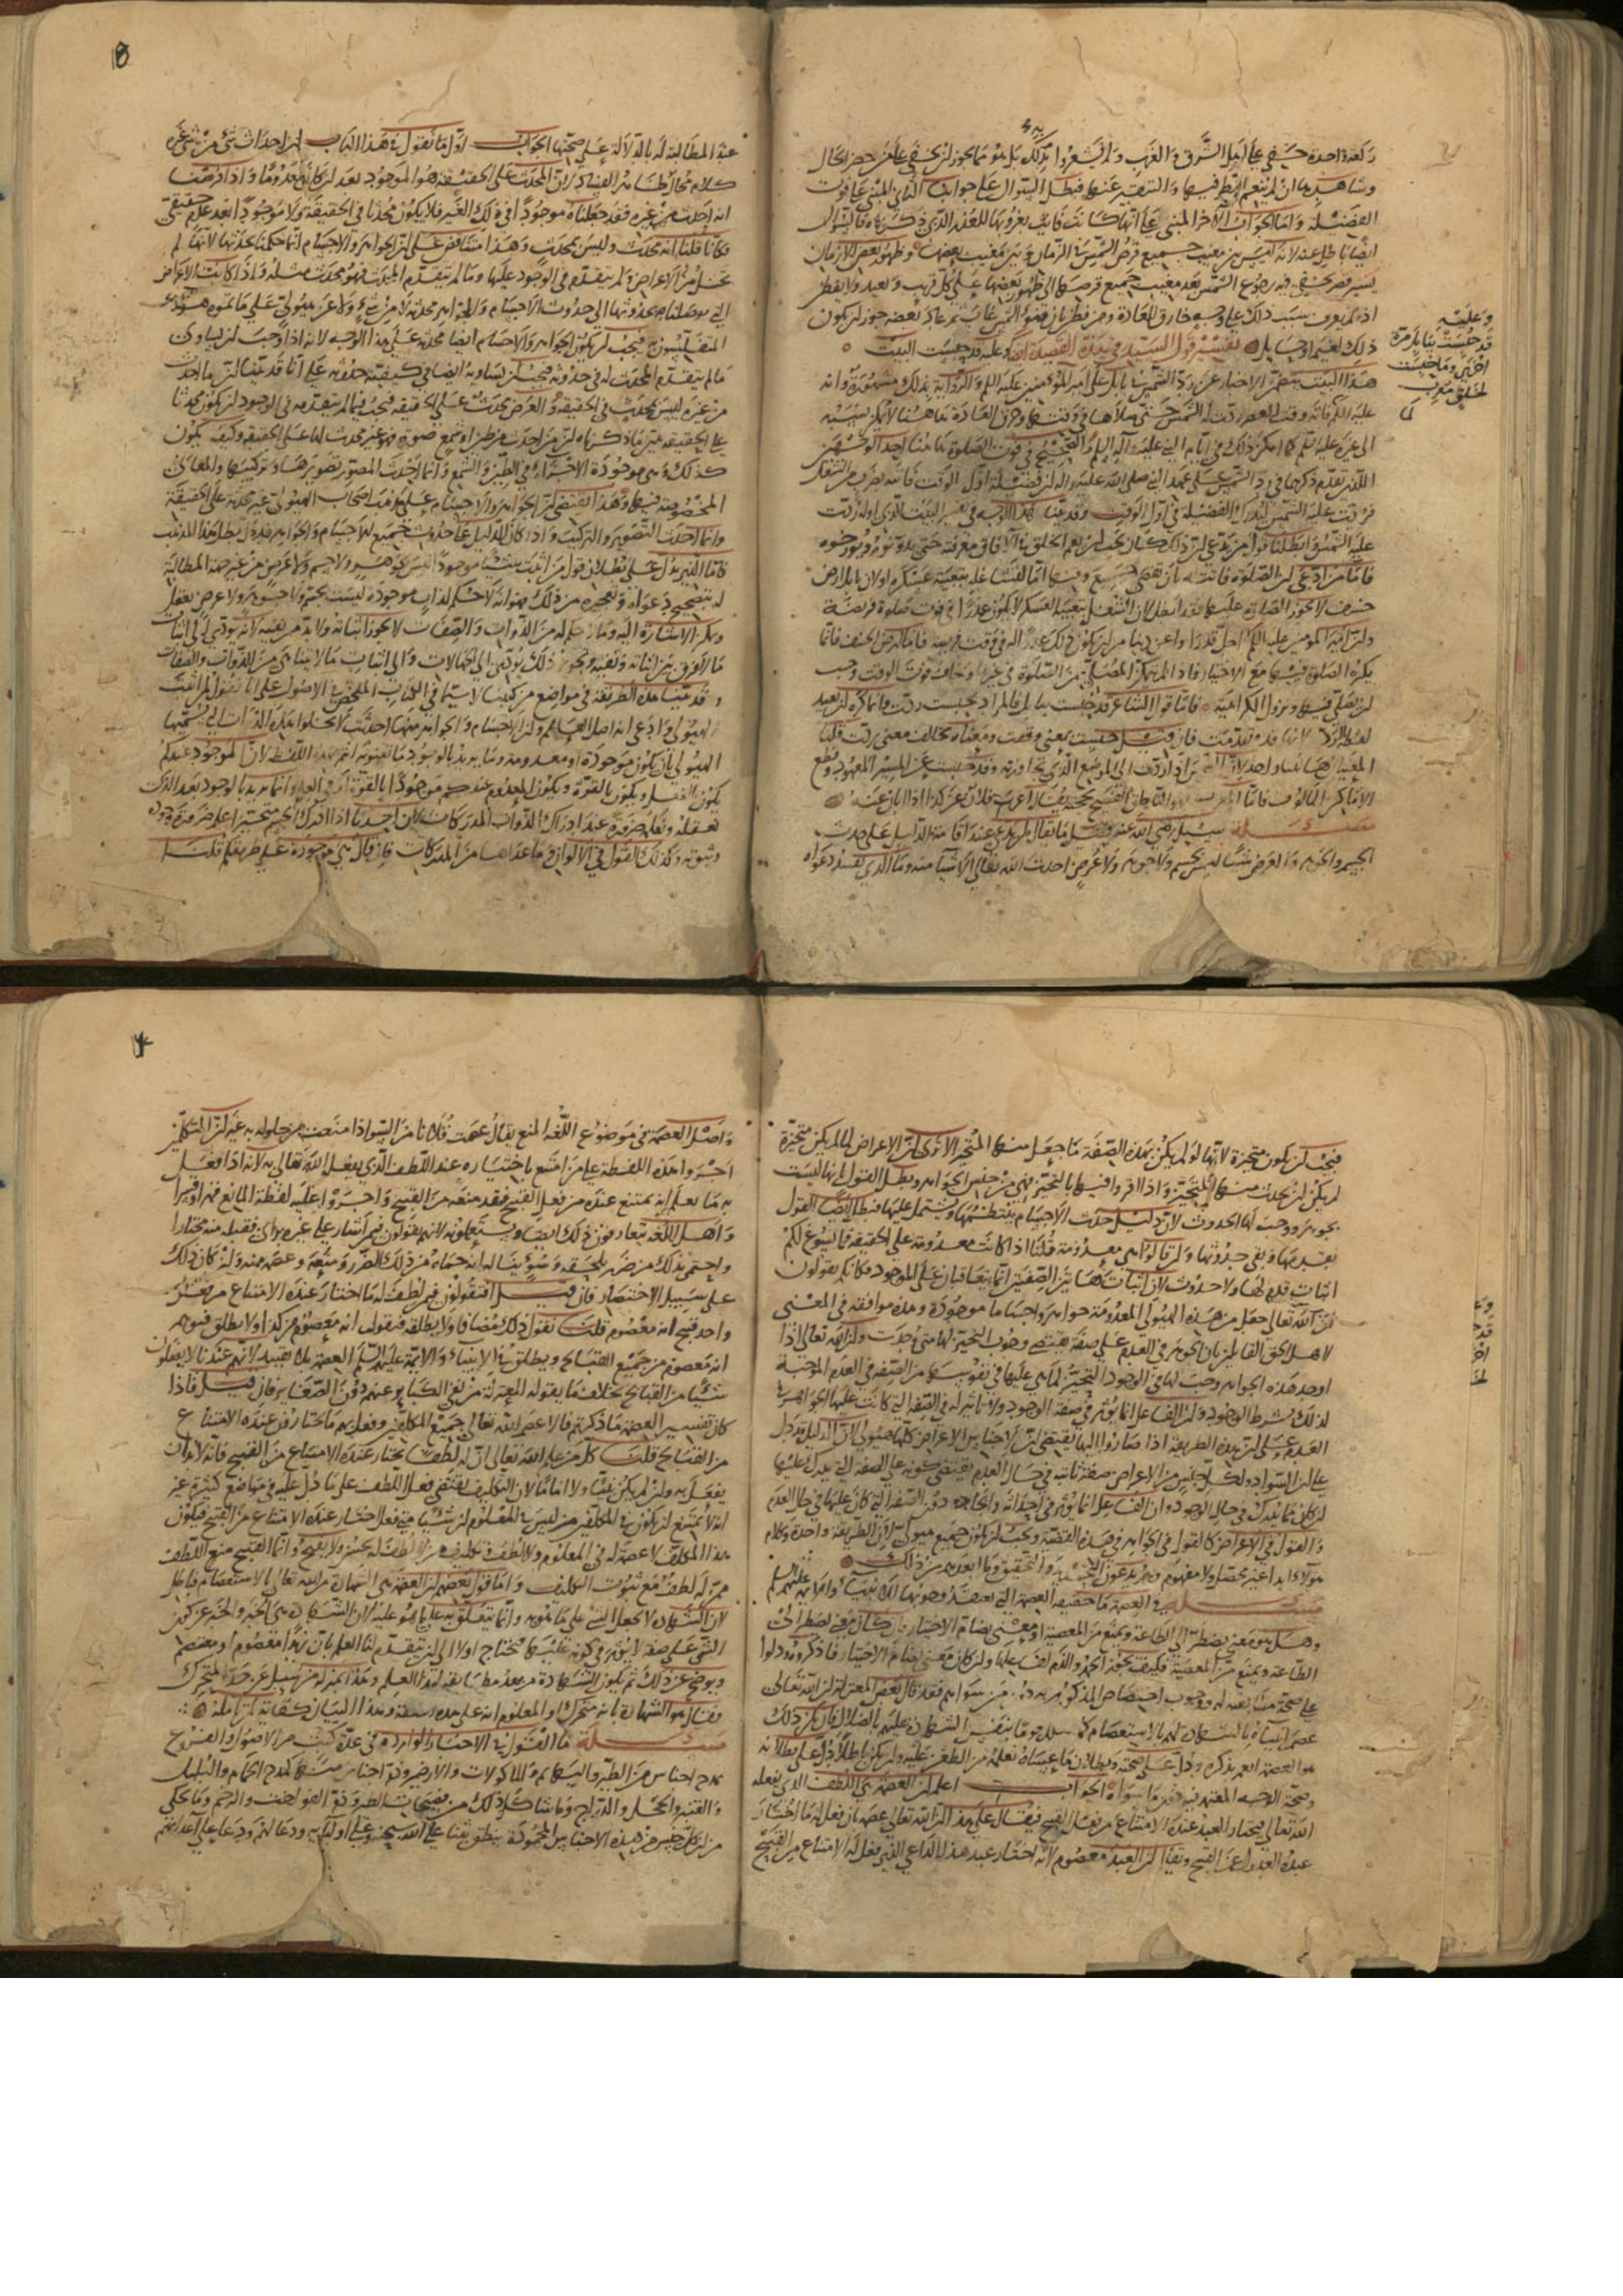 ركعة واحدة حتى يخفى على أهل الشرق والغرب ولم يشعروا بذلك بل هو مما يجوز أن يخفى على من حضر الحال
وشاهدها إن لم ينعم النظر فيها والتنقير عنها فبطل السؤال على جوابنا الثاني المبني على فوت
الفضيلة وأما الجواب الآخر المبني على أنها كانت فاتت بغروبها للعذر الذي ذكرناه فالسؤال
أيضا باطل عنه لأنه ليس بين مغيب جميع قرص الشمس في الزمان وبين مغيب بعضها وظهور بعض إلا زمان
يسير قصير يخفى فيه رجوع الشمس بعد مغيب جميع قرصها إلى ظهور بعضها على كل قريب وبعيد ولا يفطن
إذا لم يعرف سبب ذلك على وجه خارق للعادة ومن فطن بأن ضوء الشمس غاب ثم عاد بعضه جوز أن يكون
ذلك لغيم أو حايل تفسير قول السيد في هذه القصيدة أيضا وعليه قد حبست البيت
وعليه
قد حبست ببابل مرة
أخرى وما حبست
لخلق معرب
هذا البيت يتضمن الإخبار عن رد الشمس ببابل على أمير المؤمنين عليه السلم والرواية بذلك مشهورة وأنه
عليه السلم فاته وقت العصر ردت له الشمس حتى صلاها في وقتها وخرق العادة هاهنا لا يمكن نسبته
إلى غيره عليه السلم كما أمكن ذلك في أيام النبي عليه وآله السلم والصحيح في فوت الصلوة هاهنا أحد الوجهين
اللذين تقدم ذكرهما في رد الشمس على عهد النبي صلى الله عليه وآله أن فضيلة أول الوقت فاتته لضرب من الشغل
فردت عليه الشمس ليدرك الفضيلة في أول الوقت وقد بينا هذا الوجه في تفسير البيت الذي أوله ردت
عليه الشمس وأبطلنا قول من يدعي أن ذلك كان يجب أن يعم الخلق في الآفاق معرفته حتى يدونوه ويؤرخوه
فأما من ادعى أن الصلوة فاتته بأن تقضى جميع وقتها إما لتشاغله بتعبئة عسكره أو لأن بابل أرض
خسف لا يجوز الصلاة عليها فقد أبطل لأن الشغل بتعبئة العسكر لا يكون عذرا في فوت صلوة فريضة
وإن أمير المؤمنين عليه السلم أجل قدرا وأعز دينا من أن يكون ذلك عذرا له في فوت فريضة فأما أرض الخسف فإنما
يكره الصلوة فيها مع الاختيار فإذا لم يتمكن المصلي من الصلوة في غيرها وخاف فوت الوقت وجب
أن يصلي فيها وتزول الكراهية فأما قول الشاعر قد حبست ببابل فالمراد بحبست ردت وإنما كره أن يعيد
لفظة الرد لأنها قد تقدمت فإن قيل حبست بمعنى وقفت ومعناه يخالف معنى ردت قلنا
المعنيان هاهنا واحد لأن الشمس إذا ردت إلى الموضع الذي تجاوزته وقد حبست عن المسير المعهود وقطع
الأماكن المألوف فأما المعرب فهو الناطق المفصح بحجته يقال أعرب فلان عن كذا إذا أبان عنه
مسئلة سئل رضي الله عنه فقيل ما يقال لمن يدعي عند إقامة الدليل على حدث
الجسم والجوهر والعرض شيئا ليس بجسم ولا جوهر ولا عرض أحدث الله تعالى الأشياء منه وما الذي يفسد دعواه
عند المطالبة له بالدلالة على صحتها الجواب أول ما نقول في هذا الباب أن إحداث شيء من شيء غيره
كلام محال ظاهر الفساد لأن المحدث على الحقيقة هو الموجود بعد أن كان معدوما وإذا فرضنا
أنه أحدث من غيره فقد جعلناه موجودا في ذلك الغير فلا يكون محدثا في الحقيقة ولا موجودا بعد عدم حقيقي
فكأنا قلنا أنه محدث وليس بمحدث وهذا متناقض على أن الجواهر والأجسام إنما حكمنا بحدثها لأنها لم
تخل من الأعراض ولم يتقدم في الوجود عليها وما لم يتقدم المحدث فهو محدث مثله وإذا كانت الأعراض
التي توصلنا بحدوثها إلى حدوث الأجسام والجواهر محدثة لا من شيء ولا عن هيولى على ما تموه هؤلاء
المتفلسفون به فيجب أن يكون الجواهر والأجسام أيضا محدثة على هذا الوجه لأنه إذا وجب أن يساوي
ما لم يتقدم المحدث له في حدوثه فيجب أن يساويه أيضا في كيفية حدوثه على أنا قد بينا أن ما أحدث
من غيره ليس بمحدث في الحقيقة والعرض محدث على الحقيقة فيجب فيما لم يتقدمه في الوجود أن يكون محدثا
على الحقيقة يبين ما ذكرناه أن من أحدث من طين أو شمع صورة فهو غير محدث لها على الحقيقة وكيف يكون
كذلك وهي موجودة الأجزاء في الطين والشمع وإنما أحدث المصور تصويرها وتركيبها والمعاني
المخصوصة فيها وهذا يقتضي أن الجواهر والأجسام على مذهب أصحاب الهيولى غير محدثة على الحقيقة
وإنما أحدث التصوير والتركيب وإذا كان الدليل على حدوث جميع الأجسام والجواهر فقد بطل هذا المذهب
فأما الذي يدل على بطلان قول من أثبت شيئا موجودا ليس بجوهر ولا جسم ولا عرض من غير جهة المطالبة
له بتصحيح دعواه وتعجيزه عن ذلك فهو أنه لا حكم لذات موجودة ليست بجسم ولا جوهر ولا عرض يعقل
ويمكن الإشارة إليه وما لا حكم له من الذوات والصفات لا يجوز إثباته ولا بد من نفيه لأنه يؤدي إلى إثبات
ما لا فرق بين إثباته ونفيه وتجويز ذلك يؤدي إلى الجهالات وإلى إثبات ما لا يتناهى من الذوات والصفات
وقد بينا هذه الطريقة في مواضع من كتبنا لاسيما في الكتاب الملخص في الأصول على أنا نقول لمن أثبت
الهيولى وادعى أنه أصل العالم وأن الأجسام والجواهر منها أحدثت لا يخلوا هذه الذات التي تسميها
الهيولى بأن يكون موجودة أو معدومة وما يريد بالوجود ما تعنونه أنتم بهذه اللفظة لأن الموجود عندكم
يكون بالفعل ويكون بالقوة ويكون المعدوم عندكم موجودا بالقوة أو في العلم وإنما نريد بالوجود بعد الذي
نعقله ونعلمه ضرورة عند إدراك الذوات المدركات لأن أحدنا إذا أدرك الجسم متحيزا علم ضرورة وجوده
وثبوته وكذلك القول في الألوان وما عداها من المدركات فإن قال هي موجودة على طريقكم قلنا
فيجب أن يكون متحيزة لأنها لو لم يكن بهذه الصفة ما جعل منها المتحيز ألا ترى أن الأعراض لما لم يكن متحيزة
لم يكن أن يحدث منها المتحيز وإذا أقروا فيها بالتحيز فهي من جنس الجواهر وبطل القول بأنها ليست
بجوهر ووجب لها الحدوث لأن دليل حدث الأجسام ينتظمها ويشتمل عليها فبطل أيضا القول
بقدمها ونفي حدوثها وإن قالوا هي معدومة قلنا إذا كانت معدومة على الحقيقة فما يسوغ لكم
إثبات قدم لها ولا حدوث لأن إثبات هاتين الصفتين إنما يتعاقبان على الموجود فكأنكم تقولون
أن الله تعالى جعل من هذه الهيولى المعدومة جواهر وأجساما موجودة وهذه موافقة في المعنى
لأهل الحق القائلين بأن الجوهر في العدم على صفة يقتضي وجوب التحيز لها متى وجدت وأن الله تعالى إذا
أوجد هذه الجواهر وجب لها في الوجود التحيز لما هي عليها في نفوسها من الصفة في العدم الموجبة
لذلك بشرط الوجود وأن الفاعل إنما يؤثر في صفة الوجود ولا تأثير له في الصفة التي كانت عليها الجواهر في
العدم وعلى أن هذه الطريقة إذا صاروا إليها تقتضي أن أجناس الأعراض كلها هيولى لأن الدليل قد دل
على أن السواد وكل جنس من الأعراض صفة ثابتة في حال العدم يقتضي كونه على الصفة التي يدرك عليها
أن كان مما يدرك في حال الوجود وأن الفاعل إنما يؤثر في إحداثه وإيجاده دون الصفة التي كان عليها في حال العدم
والقول في الأعراض كالقول في الجواهر في هذه القضية ويجب أن يكون جميع هيولى لأن الطريقة واحدة وكلام
هؤلاء أبدا غير محصل ولا مفهوم وهم يدعون التحديد والتحقيق وما أبعدهم من ذلك
مسئلة في العصمة ما حقيقة العصمة التي يعتقد وجوبها للأنبياء والأئمة عليهم السلم
وهل هو معنى يضطر إلى الطاعة ويمنع من المعصية أو معنى يضام الاختيار فإن كان معنى يضطر إلى
الطاعة ويمنع من المعصية فكيف يجوز الحمد والذم لفاعلهما وإن كان معنى يضام الاختيار فاذكروه ودلوا
على صحة مطابقته له ووجوب اختصاص المذكورين به دون من سواهم فقد قال بعض المعتزلة أن الله تعالى
عصم أنبياءه بالشهادة لهم بالاستعصام كما ضلل قوما بنفس الشهادة عليهم بالضلال فإن يكن ذلك
هو العصمة أنعم بذكره ودل على صحته وبطلان ما عساه نعلمه من الطعن عليه وإن يكن باطلا دل على بطلانه
وصحة الوجه المعتمد فيه دون ما سواه الجواب اعلم أن العصمة هي اللطف الذي يفعله
الله تعالى فيختار العبد عنده الامتناع من فعل القبيح فيقال على هذا أن الله تعالى عصمه بأن فعل له ما اختار
عنده العدول عن القبيح ويقال أن العبد معصوم لأنه اختار عند هذا الداعي الذي فعل له الامتناع من القبيح
وأصل العصمة في موضوع اللغة المنع يقال عصمت فلانا من السوء إذا منعت من حلوله به غير أن المتكلمين
أجروا هذه اللفظة على من امتنع باختياره عند اللطف الذي يفعل الله تعالى به لأنه إذا فعل
به ما يعلم أنه يمتنع عنده من فعل القبيح فقد منعه من القبيح وأجروا عليه لفظة المانع قهرا وقسرا
وأهل اللغة يتعارفون ذلك أيضا ويستعملونه لأنهم يقولون فيمن أشار على غيره برأي فقبله منه مختارا
واحتمى بذلك من ضرر يلحقه وسوء يناله أنه حماه من ذلك الضرر ومنعه وعصمه منه وإن كان ذلك
على سبيل الاختيار فإن قيل أفتقولون فيمن لطف له بما اختار عنده الامتناع من فعل
واحد قبيح أنه معصوم قلنا نقول ذلك مضافا ولا نطلقه فنقول أنه معصوم من كذا ولا يطلق فيوهم
أنه معصوم من جميع القبائح ويطلق في الأنبياء والأئمة عليهم السلم العصمة بلا تقييد لأنهم عندنا لا يفعلون
شيئا من القبائح بخلاف ما يقوله المعتزلة من نفي الكبائر عنهم دون الصغائر فإن قيل فإذا
كان تفسير العصمة ما ذكرتم فألا عصم الله تعالى جميع المكلفين وفعل بهم ما يختارون عنده الامتناع
من القبائح قلنا كل من علم الله تعالى أن له لطفا يختار عنده الامتناع من القبيح فإنه لا بد أن
يفعل به وإن لم يكن نبيا ولا إماما لأن التكليف يقتضي فعل اللطف على ما دل عليه في مواضع كثيرة غير
أنه لا يمتنع أن يكون في المكلفين من ليس في المعلوم أن شيئا متى فعل اختار عنده الامتناع من القبيح فيكون
هذا المكلف لا عصمة له في المعلوم ولا لطف وتكليف من لا لطف له يحسن ولا يقبح وإنما القبيح منع اللطف
فمن له لطف مع ثبوت التكليف وأما قول بعضهم أن العصمة هي الشهادة من الله تعالى بالاستعصام فباطل
لأن الشهادة لا يجعل الشيء على ما هو به وإنما يتعلق به على ما هو عليه لأن الشهادة هي الخبر والخبر عن كون
الشيء على صفة لا يؤثر في كونه عليها فيحتاج أولا إلى أن يتقدم لنا العلم بأن زيدا معصوم أو معتصم
ويوضح عن ذلك ثم يكون الشهادة من بعد مطابقة لهذا العلم وهذا بمنزلة من سئل عن حد المتحرك
فقال هو الشهادة بأنه متحرك أو المعلوم أنه على هذه الصفة وهذا البيان كفاية لمن تأمله
مسئلة ما القول في الأخبار الواردة في عدة كتب من الأصول والفروع
بمدح أجناس من الطير والبهائم والمأكولات والأرضين وذم أجناس منها كمدح الحمام والبلبل
والقنبر والحجل والدراج وما شاكل ذلك من فصيحات الطير وذم الفواخت والرخم وما يحكى
من أن كل جنس من هذه الأجناس المحمودة ينطق بثناء على الله سبحانه وعلى أوليائه ودعاء لهم ودعاء على أعدائهم